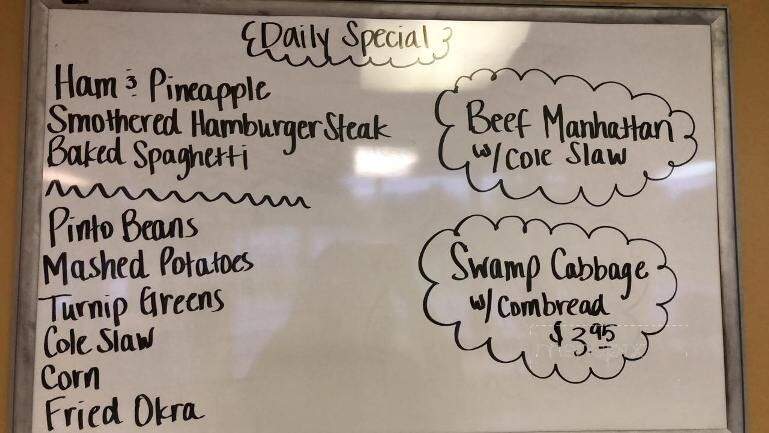 Daily Special
Ham & Pineapple
Smothered Hamburger Steak
Baked Spaghetti
Pinto Beans
Mashed Potatoes
Turnip Greens
Cole Slaw
Corn
Fried Okra
Beef Manhattan
w/ Cole Slaw
Swamp Cabbage
w/ Cornbread
$3.95